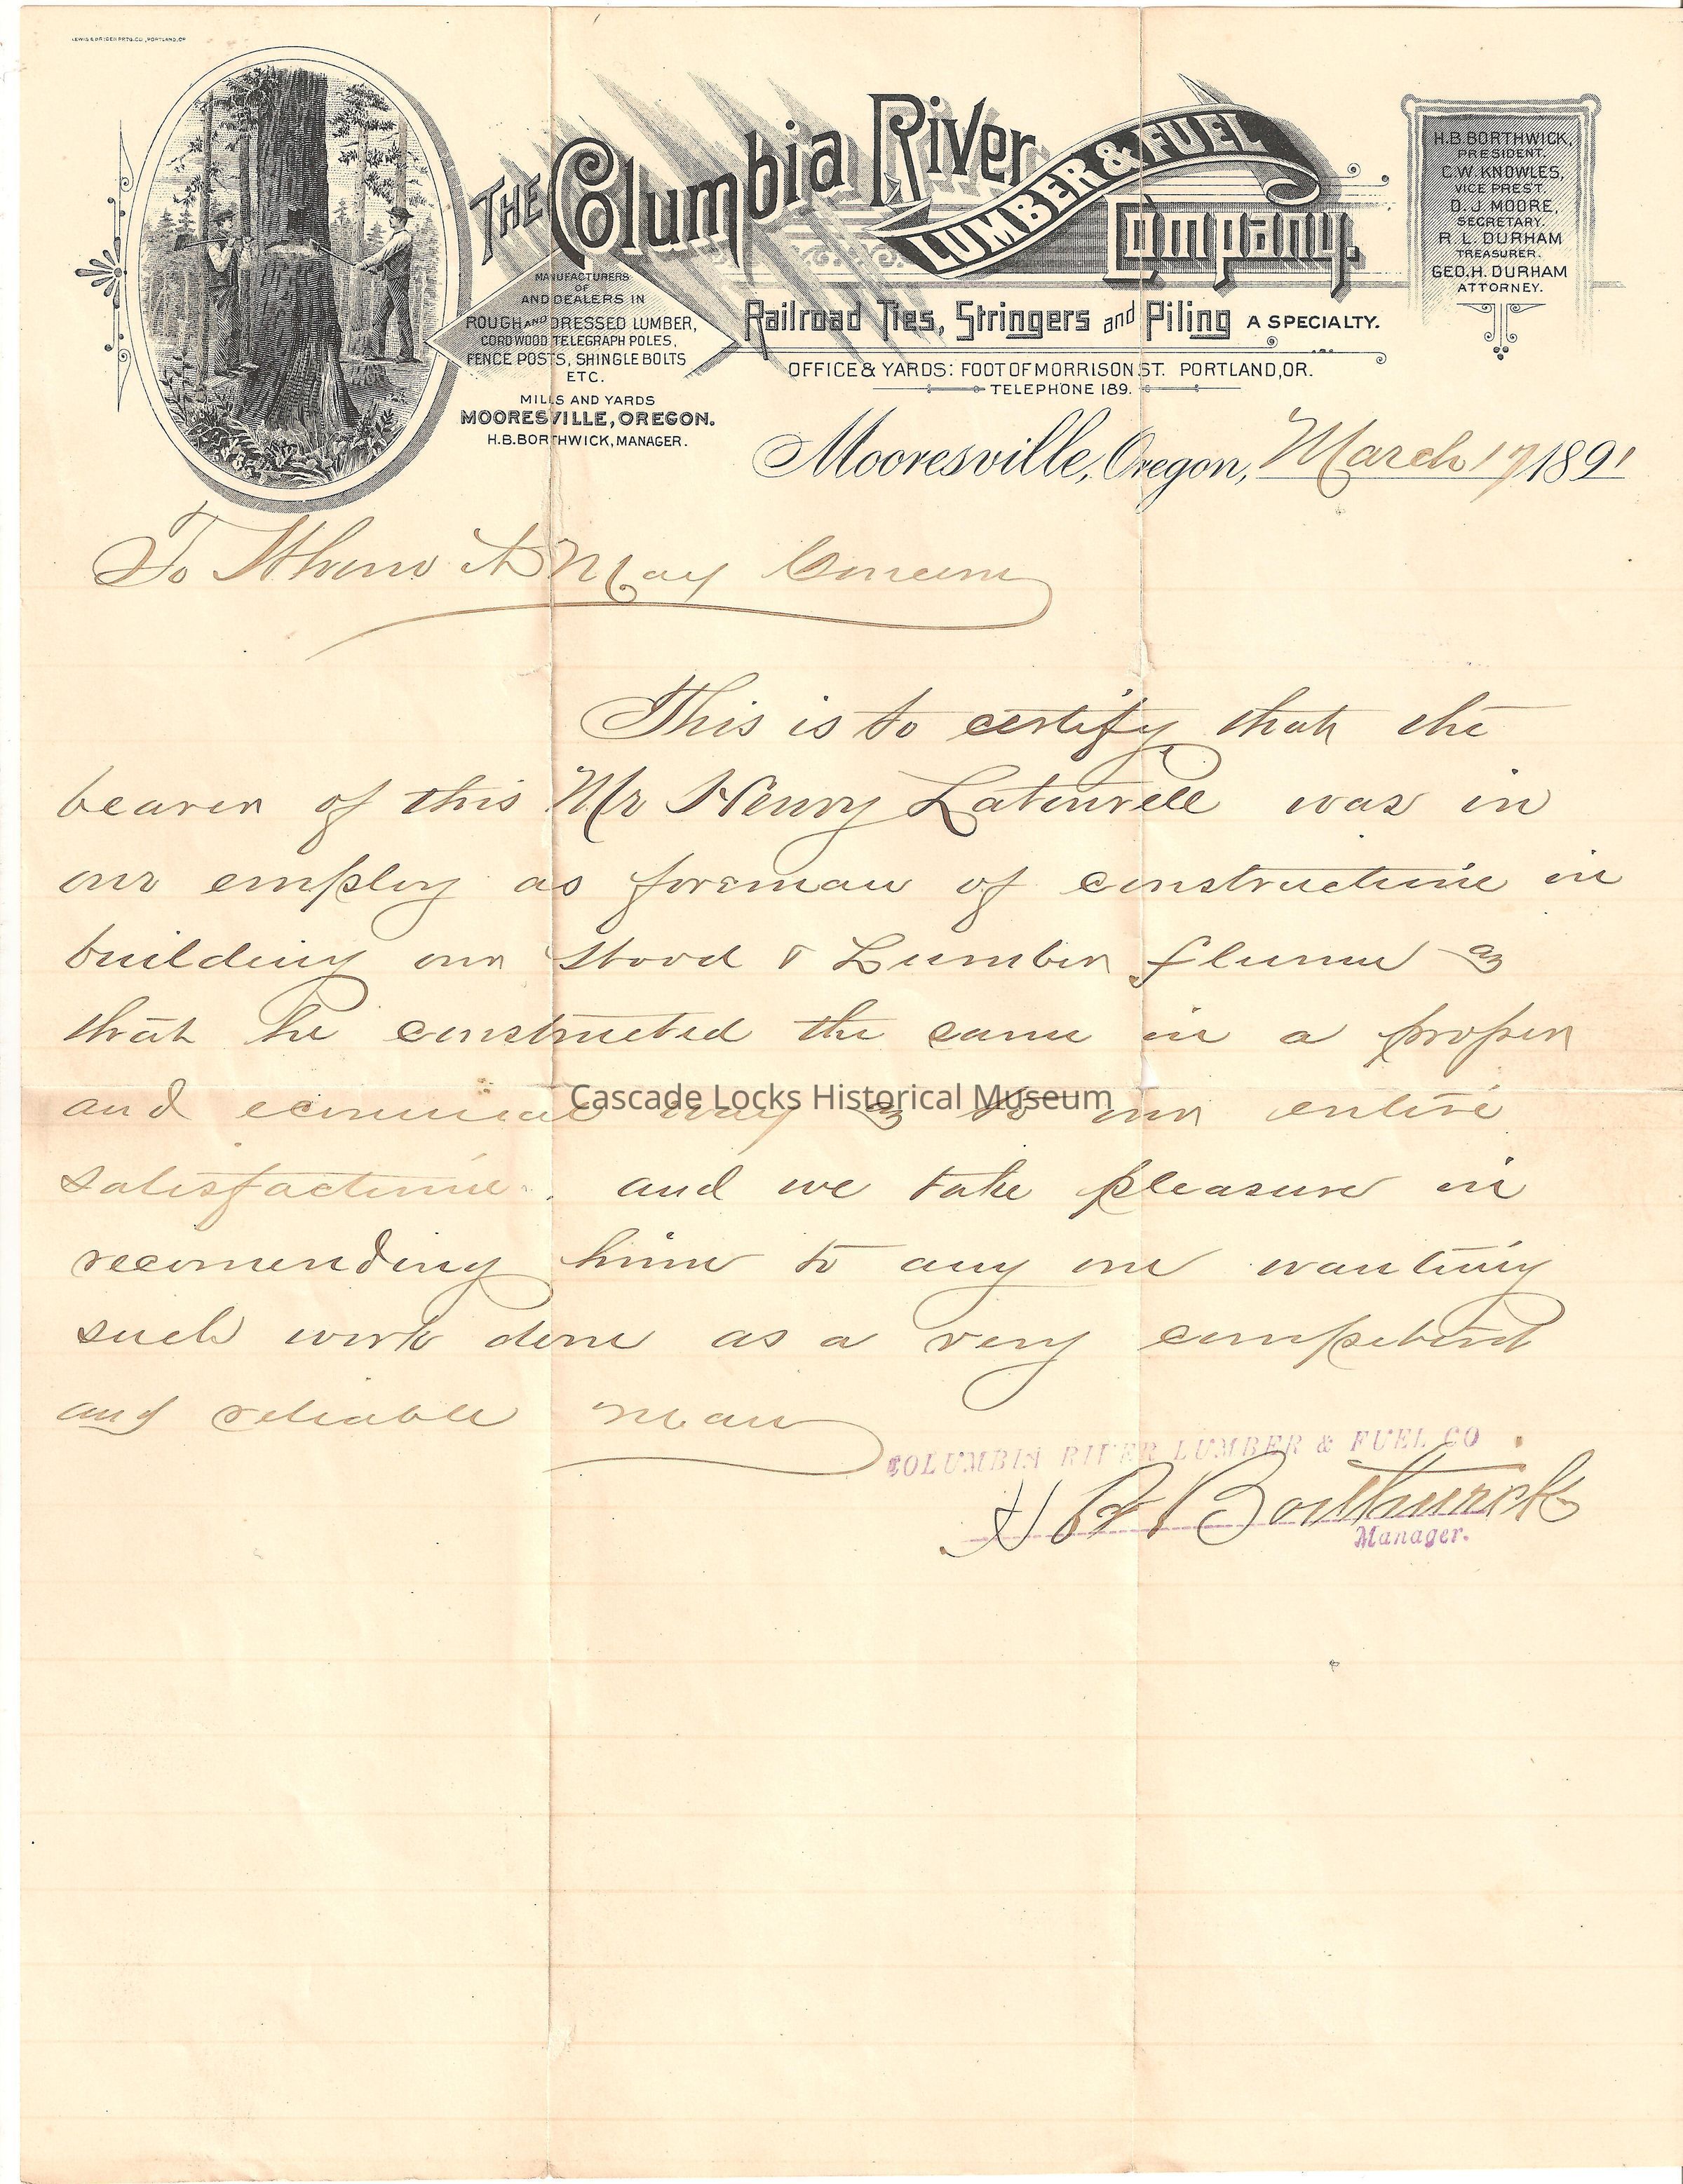 LEWIS & DRYDEN PRTG. CO., PORTLAND, OR
THE Columbia River
LUMBER & FUEL
Company.
MANUFACTURERS
OF
AND DEALERS IN
ROUGH AND DRESSED LUMBER,
CORDWOOD TELEGRAPH POLES,
FENCE POSTS, SHINGLE BOLTS
ETC.
MILLS AND YARDS
MOORESVILLE, OREGON.
H.B. BORTHWICK, MANAGER.
Railroad Ties, Stringers and Piling A SPECIALTY.
OFFICE & YARDS: FOOT OF MORRISON ST. PORTLAND, OR.
TELEPHONE 189.
H.B. BORTHWICK,
PRESIDENT.
C.W. KNOWLES,
VICE PREST.
D.J. MOORE,
SECRETARY.
R.L. DURHAM
TREASURER.
GEO. H. DURHAM
ATTORNEY.
Mooresville, Oregon, March 17 1891
To Whom It May Concern
This is to certify that the
bearer of this Mr Henry Latourell was in
our employ as foreman of construction in
building our Wood & Lumber flume &
that he constructed the same in a proper
and way & to our entire
satisfaction. and we take pleasure in
recomending him to any one wanting
such work done as a very competent
and reliable man
COLUMBIA RIVER LUMBER & FUEL CO
H B Borthwick
Manager.
Cascade Locks Historical Museum